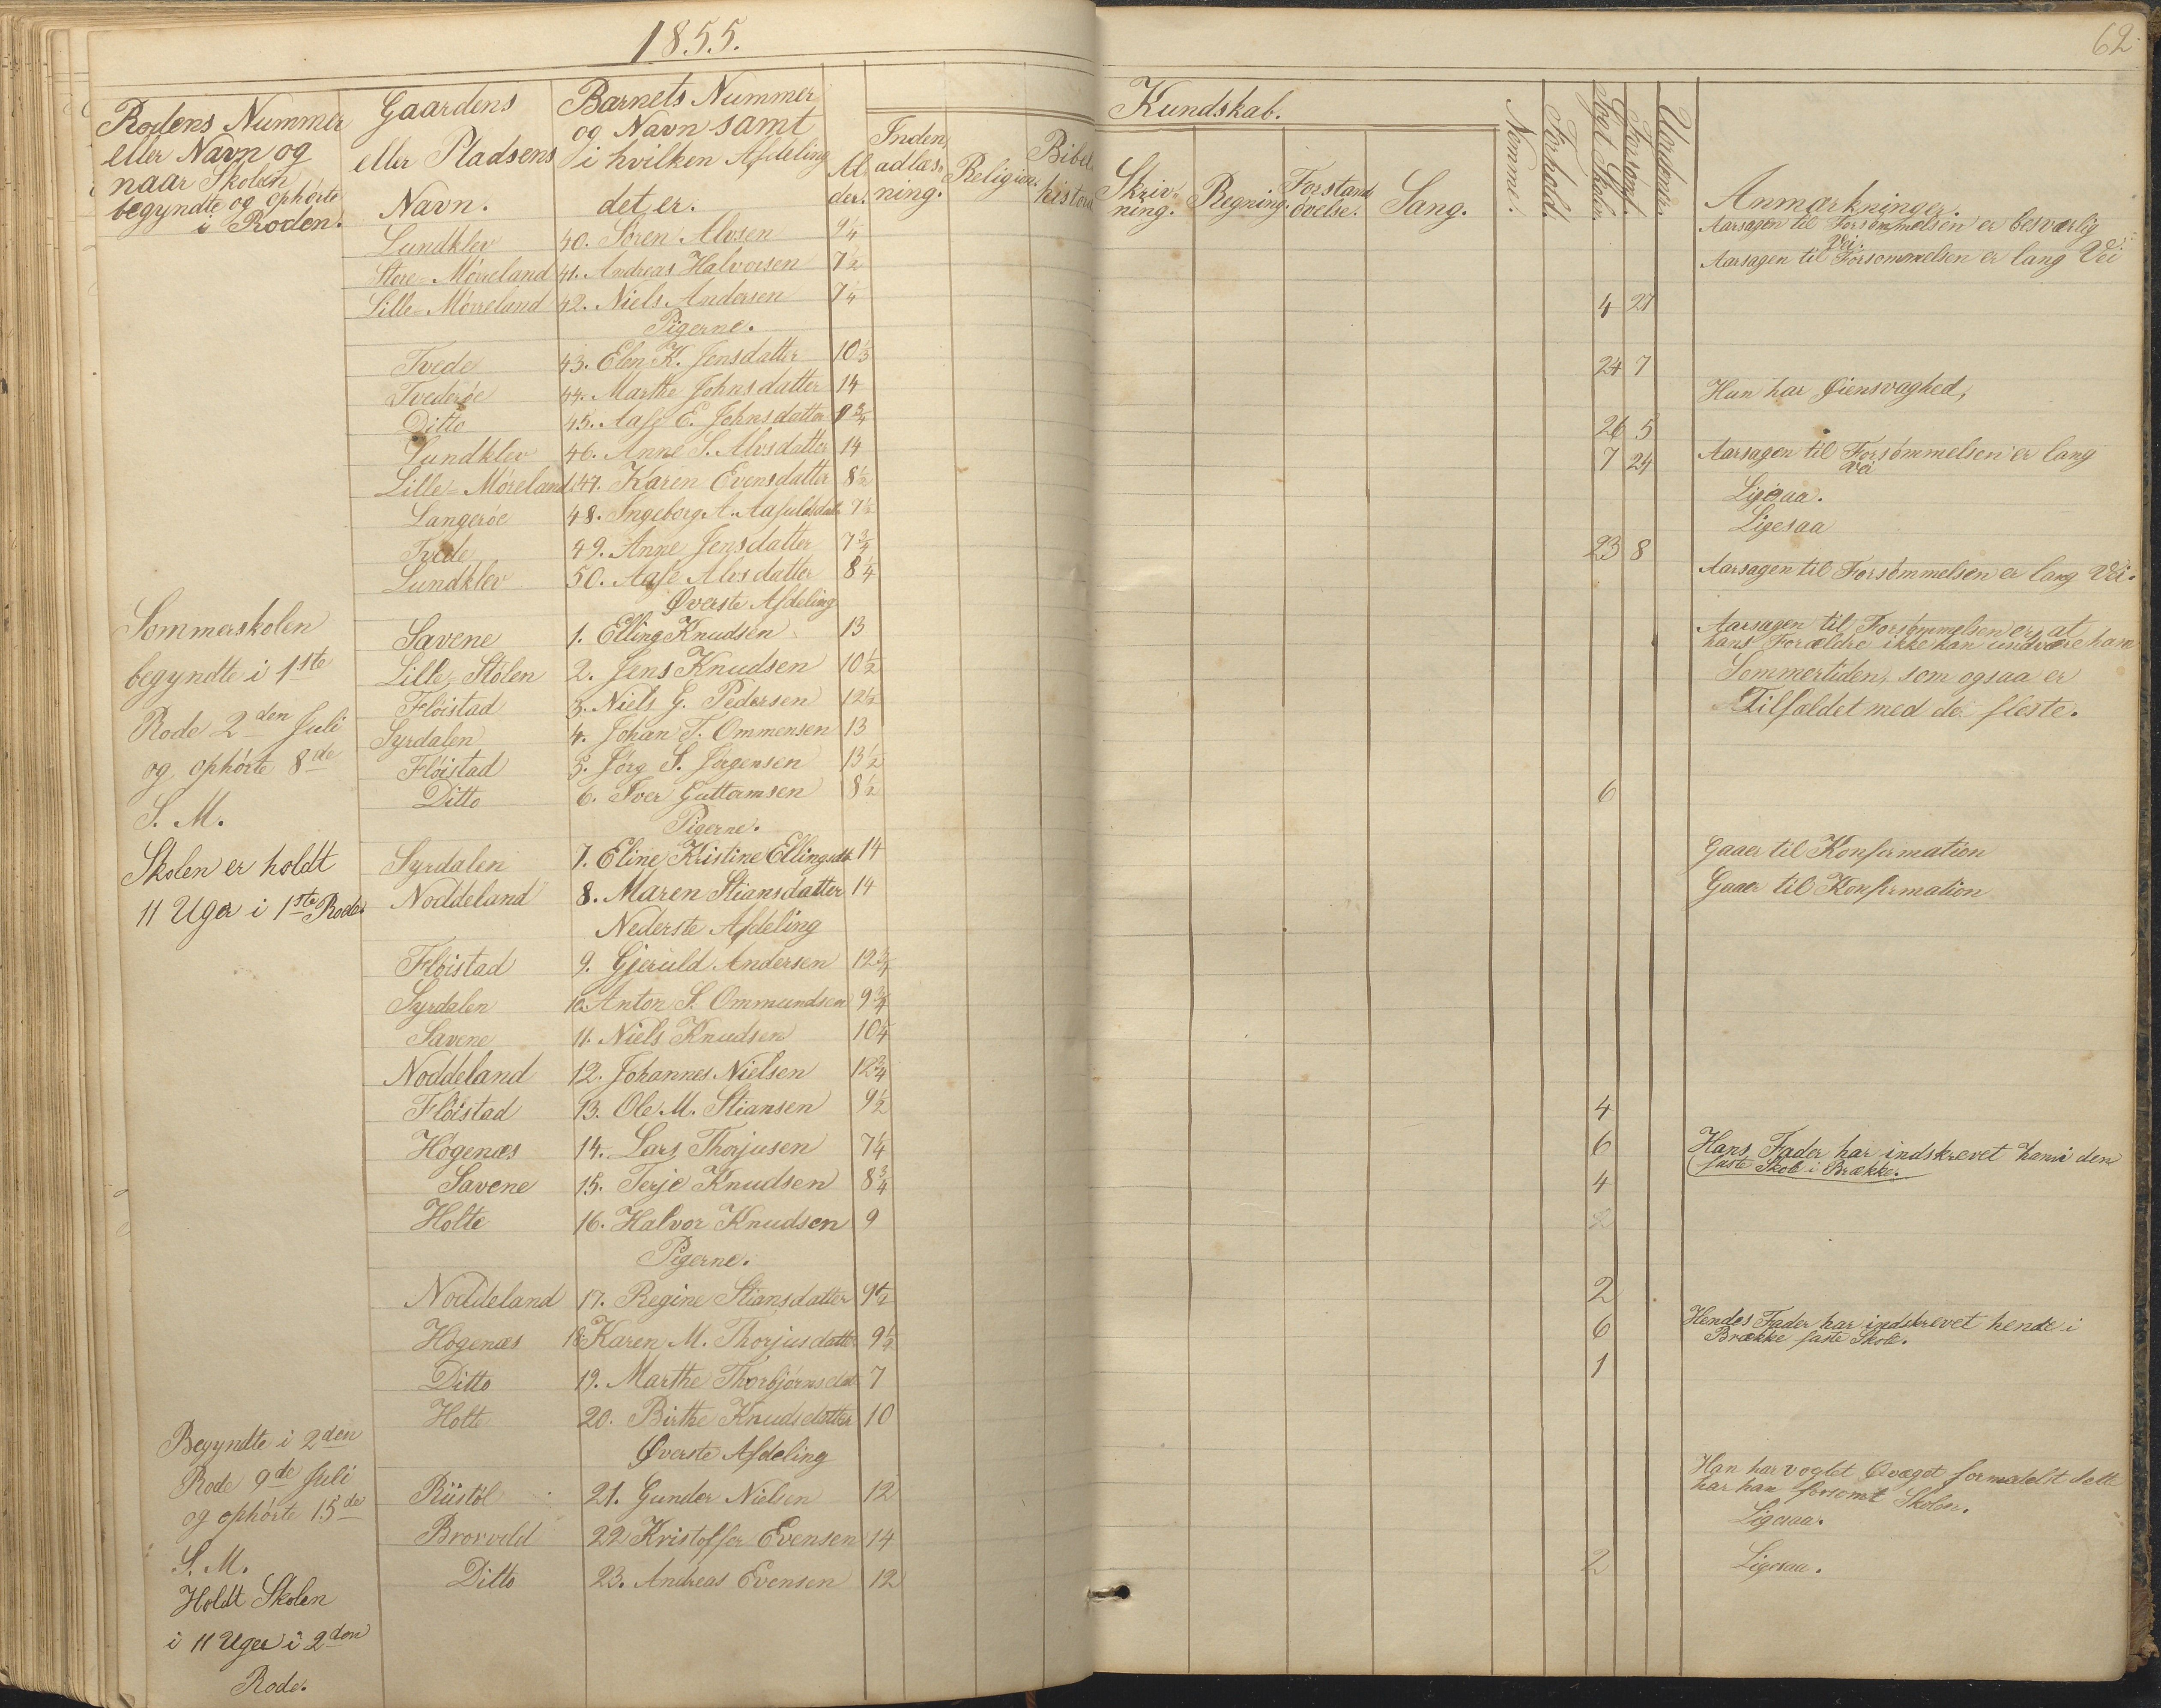 1855.
62
Rodens Nummer
eller Navn og
naar Skolen
begyndte og ophørte
i Roden.
Gaardens
eller Pladsens
Navn.
Barnets Nummer
og Navn samt
i hvilken Afdeling
det er.
Al-
der.
Inden
adlæs-
ning.
Religion.
Bibel
histori
Kundskab.
Skriv-
ning.
Regning.
Forstands
øvelse.
Sang.
Nemme.
Forhold.
Søgt Skole.
Forsømt.
Vurdentr.
Anmærkninger.
Lundklev 40. Søren Alvsen 9 1/4 Aarsagen til Forsømmelsen er besværlig
Vei.
Store-Mörreland 41. Andreas Halvorsen 7 1/2 Aarsagen til Forsømmelsen er lang Vei
Lille-Mörreland 42. Niels Andersen 7 1/4 4 27
Pigerne.
Tvede 43. Elen K. Jensdatter 10 1/3 24 7
Tvederöe 44. Marthe Johnsdatter 14 Hun har Øiensvaghed,
Ditto 45. Aase E. Johnsdatter 8 3/4 26 5
Lundklev 46. Anne S. Alvsdatter 14 7 24 Aarsagen til Forsømmelsen er lang
Vei
Lille-Möreland 47. Karen Evensdatter 8 1/2 Ligesaa.
Langeröe 48. Ingeborg A. Aasulds dat. 7 1/2 Ligesaa
Tvede 49. Anne Jensdatter 7 3/4 23 8
Lundklev 50. Aase Alvsdatter 8 1/4 Aarsagen til Forsømmelsen er lang Vei.
Øverste Afdeling
Sommerskolen
begyndte i 1ste
Rode 2den Juli
og ophørte 8de
S. M.
Skolen er holdt
11 Uger i 1ste Rode.
Savene 1. Elling Knudsen 13 Aarsagen til Forsømmelsen er, at
hans Forældre ikke kan undvære ham
Lille-Stölen 2. Jens Knudsen 10 1/2 Sommertiden, som ogsaa er
Flöistad 3. Niels G. Pedersen 12 1/2 Tilfældet med de fleste.
Syrdalen 4. Johan T. Ommensen 13
Flöistad 5. Jörg S. Jörgensen 13 1/2
Ditto 6. Iver Guttormsen 8 1/2 6
Pigerne.
Syrdalen 7. Eline Kristine Ellingsdt. 14 Gaaer til Konfirmation
Noddeland 8. Maren Stiansdatter 14 Gaaer til Konfirmation
Nederste Afdeling
Flöistad 9. Gjeruld Andersen 12 3/4
Syrdalen 10. Anton S. Ommundsen 9 3/4
Savene 11. Niels Knudsen 10 1/4
Noddeland 12. Johannes Nielsen 12 3/4
Flöistad 13. Ole M. Stiansen 9 1/2 4
Högenæs 14. Lars Thorjusen 7 1/4 6 Hans Fader har indskrevet ham i den
faste Skole i Brække.
Savene 15. Terje Knudsen 8 3/4 4
Holte 16. Halvor Knudsen 9 2
Pigerne.
Noddeland 17. Regine Stiansdatter 9 1/2 2
Högenæs 18. Karen M. Thorjusdatter 9 1/2 6 Hendes Fader har indskrevet hende i
Brække faste Skole.
Ditto 19. Marthe Thorbjörnsdat. 7 1
Holte 20. Birthe Knudsdatter 10
Øverste Afdeling
Begyndte i 2den
Rode 9de Juli
og ophørte 15de
S. M.
Holdt Skolen
i 11 Uger i 2den
Rode.
Riistöl 21. Gunder Nielsen 12 Han har vogtet Qvæget formedelst dette
har han forsømt Skolen.
Brorveld 22 Kristoffer Evensen 14 Ligesaa.
Ditto 23. Andreas Evensen 12 2 Ligesaa.